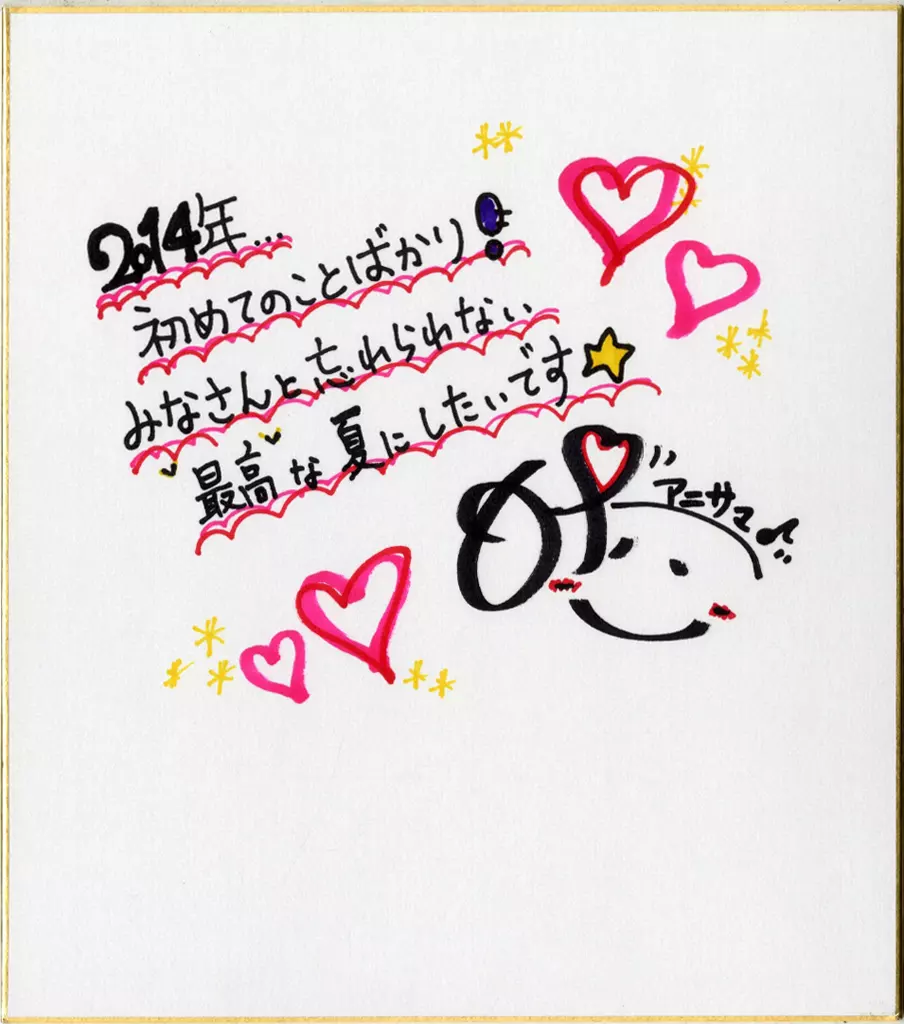 2014年...
初めてのことばかり!
みなさんと忘れられない
最高な夏にしたいです
アニサマ♪